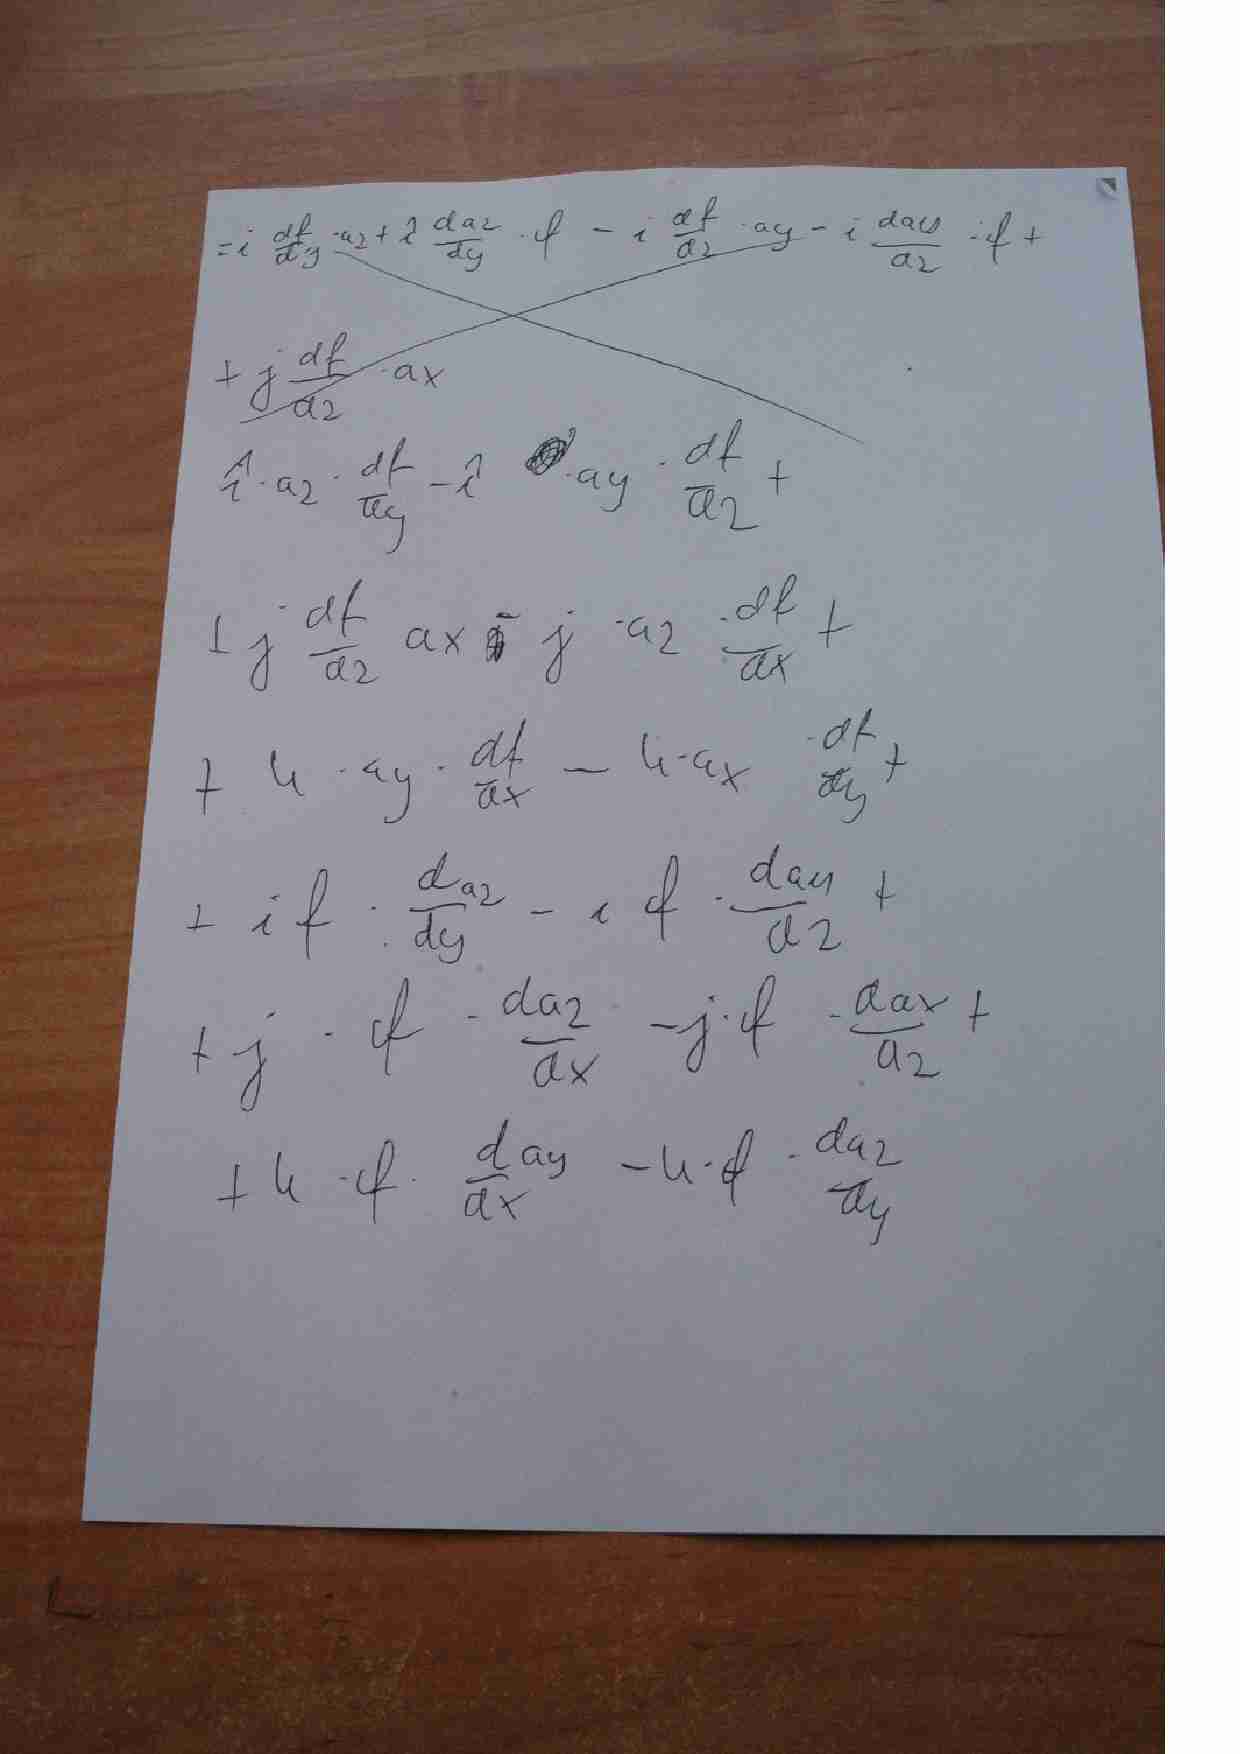 = i df/dy · az + i daz/dy · f − i df/dz · ay − i day/dz · f +
+ j df/dz · ax
i · az · df/dy − i · ay · df/dz +
+ j · df/dz ax − j · az · df/dx +
+ k · ay · df/dx − k · ax · df/dy +
+ i f · daz/dy − i f · day/dz +
+ j · f · daz/dx − j · f · dax/dz +
+ k · f · day/dx − k · f · daz/dy